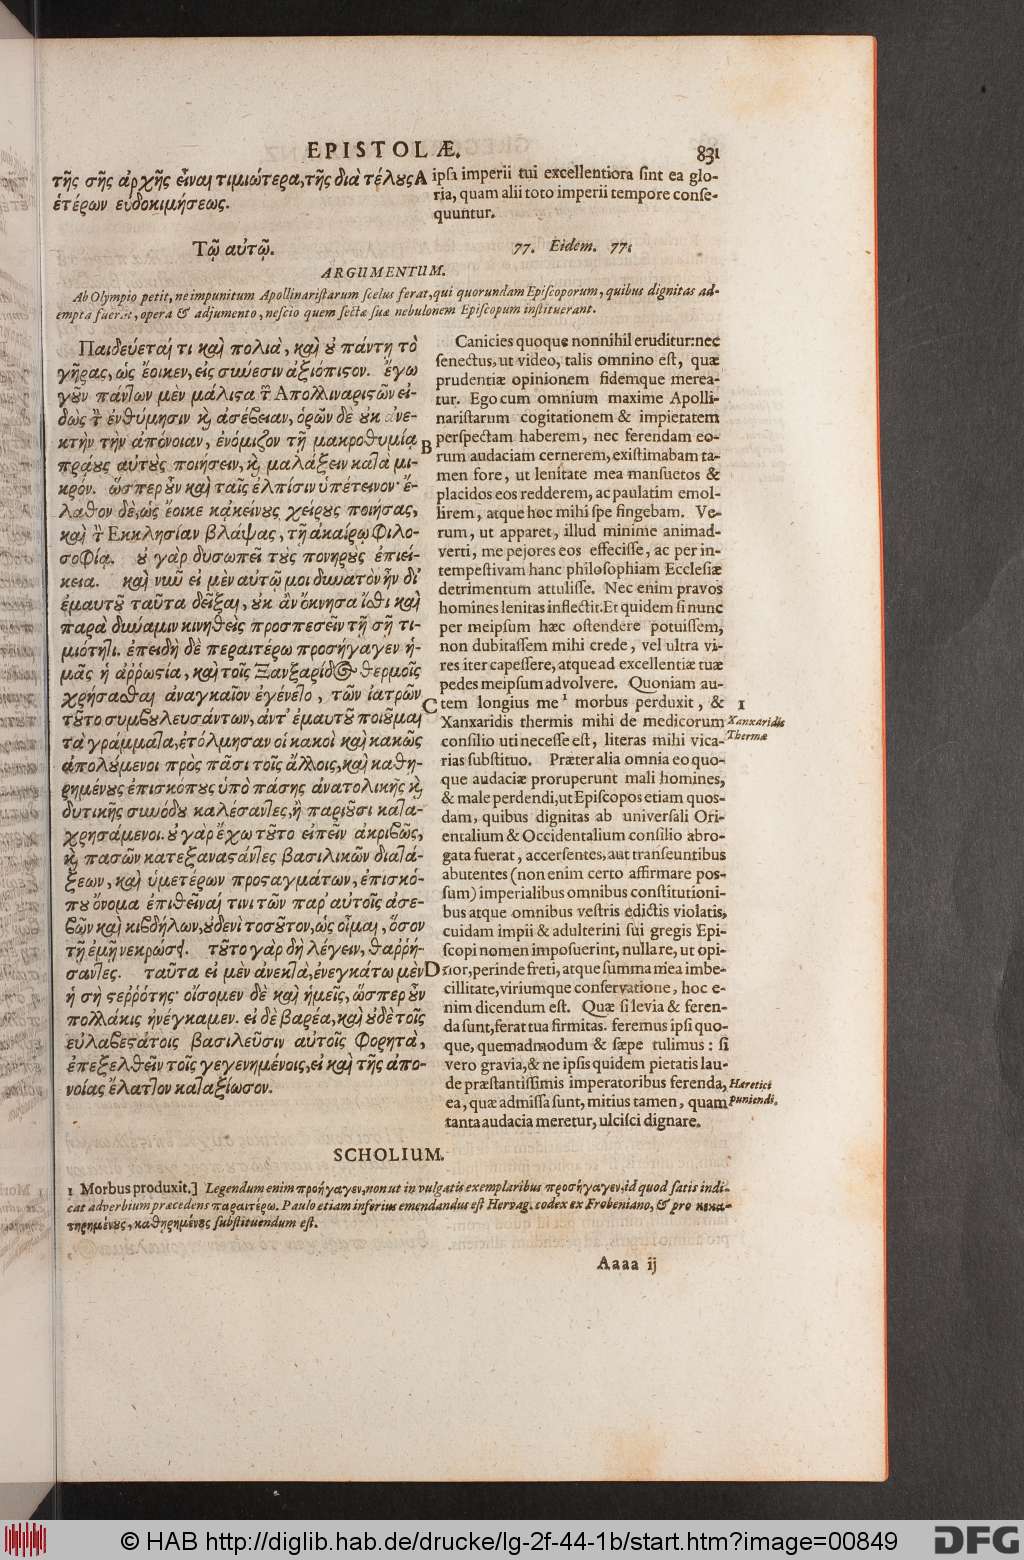 EPISTOLÆ. 831
τῆς σῆς ἀρχῆς εἶναι τιμιώτερα, τῆς διὰ τέλους A
ἑτέρων εὐδοκιμήσεως.
ipsi imperii tui excellentiora sint ea glo-
ria, quam alii toto imperii tempore conse-
quuntur.
Τῷ αὐτῷ.
77. Eidem. 77.
ARGUMENTUM.
Ab Olympio petit, ne impunitum Apollinaristarum scelus ferat, qui quorundam Episcoporum, quibus dignitas ad-
empta fuerat, opera & adjumento, nescio quem sectæ suæ nebulonem Episcopum instituerant.
Παιδεύεταί τι καὶ πολιὰ, καὶ ὐ πάντη τὸ
γῆρας, ὡς ἔοικεν, εἰς σύνεσιν ἀξιόπιστον. ἔγω
γοῦν πάντων μὲν μάλιστα τ Ἀπολλιναριστῶν εἰ-
δὼς τ ἐνθύμησιν κ ἀσέβειαν, ὁρῶν δὲ ὐκ ἀνε-
κτὴν τὴν ἀπόνοιαν, ἐνόμιζον τῇ μακροθυμίᾳ
B
πράους αὐτοὺς ποιήσειν, κ μαλάξειν κατὰ μι-
κρόν. ὥσπερ οὖν καὶ ταῖς ἐλπίσιν ὑπέτεινον· ἔ-
λαθον δὲ, ὡς ἔοικε κἀκείνους χείρους ποιήσας,
καὶ τ Ἐκκλησίαν βλάψας, τῇ ἀκαίρῳ φιλο-
σοφίᾳ. ὐ γὰρ δυσωπεῖ τοὺς πονηροὺς ἐπιεί-
κεια. καὶ νῦν εἰ μὲν αὐτῷ μοι δυνατὸν ἦν δι'
ἐμαυτοῦ ταῦτα δεῖξαι, ὐκ ἂν ὤκνησα ἴσθι καὶ
παρὰ δύναμιν κινηθεὶς προσπεσεῖν τῇ σῇ τι-
μιότητι. ἐπειδὴ δὲ περαιτέρω προσήγαγεν ἡ-
μᾶς ἡ ἀῤῥωστία, καὶ τοῖς Ξανξαρίδος θερμοῖς
χρήσασθαι ἀναγκαῖον ἐγένετο, τῶν ἰατρῶν
C
τοῦτο συμβουλευσάντων, ἀντ' ἐμαυτοῦ ποιοῦμαι
τὰ γράμματα, ἐτόλμησαν οἱ κακοὶ καὶ κακῶς
ἀπολούμενοι πρὸς πᾶσι τοῖς ἄλλοις, καὶ καθη-
ρημένους ἐπισκόπους ὑπὸ πάσης ἀνατολικῆς κ
δυτικῆς συνόδου καλέσαντες, ἢ παριοῦσι κατα-
χρησάμενοι. ὐ γὰρ ἔχω τοῦτο εἰπεῖν ἀκριβῶς,
κ πασῶν κατεξαναστάντες βασιλικῶν διατά-
ξεων, καὶ ὑμετέρων προσταγμάτων, ἐπισκό-
που ὄνομα ἐπιθεῖναι τινι τῶν παρ' αὐτοῖς ἀσε-
βῶν καὶ κιβδήλων, οὐδενὶ τοσοῦτον, ὡς οἶμαι, ὅσον
τῇ ἐμῇ νεκρώσει. τοῦτο γὰρ δὴ λέγειν, θαῤῥή-
σαντες. ταῦτα εἰ μὲν ἀνεκτὰ, ἐνεγκάτω μὲν D
ἡ σὴ στεῤῥότης· οἴσομεν δὲ καὶ ἡμεῖς, ὥσπερ οὖν
πολλάκις ἠνέγκαμεν. εἰ δὲ βαρέα, καὶ οὐδὲ τοῖς
εὐλαβεστάτοις βασιλεῦσιν αὐτοῖς φορητὰ,
ἐπεξελθεῖν τοῖς γεγενημένοις, εἰ καὶ τῆς ἀπο-
νοίας ἔλαττον καταξίωσον.
Canicies quoque nonnihil eruditur: nec
senectus, ut video, talis omnino est, quæ
prudentiæ opinionem fidemque merea-
tur. Ego cum omnium maxime Apolli-
naristarum cogitationem & impietatem
perspectam haberem, nec ferendam eo-
rum audaciam cernerem, existimabam ta-
men fore, ut lenitate mea mansuetos &
placidos eos redderem, ac paulatim emol-
lirem, atque hoc mihi spe fingebam. Ve-
rum, ut apparet, illud minime animad-
verti, me pejores eos effecisse, ac per in-
tempestivam hanc philosophiam Ecclesiæ
detrimentum attulisse. Nec enim pravos
homines lenitas inflectit. Et quidem si nunc
per meipsum hæc ostendere potuissem,
non dubitassem mihi crede, vel ultra vi-
res iter capessere, atque ad excellentiæ tuæ
pedes meipsum advolvere. Quoniam au-
tem longius me 1 morbus perduxit, & 1
Xanxaridis thermis mihi de medicorum Xanxaridis
consilio uti necesse est, literas mihi vica- Thermæ
rias substituo. Præter alia omnia eo quo-
que audaciæ proruperunt mali homines,
& male perdendi, ut Episcopos etiam quos-
dam, quibus dignitas ab universali Ori-
entalium & Occidentalium consilio abro-
gata fuerat, accersentes, aut transeuntibus
abutentes (non enim certo affirmare pos-
sum) imperialibus omnibus constitutioni-
bus atque omnibus vestris edictis violatis,
cuidam impii & adulterini sui gregis Epi-
scopi nomen imposuerint, nulla re, ut opi-
nor, perinde freti, atque summa mea imbe-
cillitate, viriumque conservatione, hoc e-
nim dicendum est. Quæ si levia & feren-
da sunt, ferat tua firmitas. feremus ipsi quo-
que, quemadmodum & sæpe tulimus: si
vero gravia, & ne ipsis quidem pietatis lau-
de præstantissimis imperatoribus ferenda, Hæretici
ea, quæ admissa sunt, mitius tamen, quam puniendi.
tanta audacia meretur, ulcisci dignare.
SCHOLIUM.
1 Morbus produxit.] Legendum enim προήγαγεν, non ut in vulgatis exemplaribus προσήγαγεν, id quod satis indi-
cat adverbium præcedens παραιτέρω. Paulo etiam inferius emendandus est Hervag. codex ex Frobeniano, & pro κεκα-
τηρημένους, καθηρημένους substituendum est.
Aaaa ij
© HAB http://diglib.hab.de/drucke/lg-2f-44-1b/start.htm?image=00849
DFG